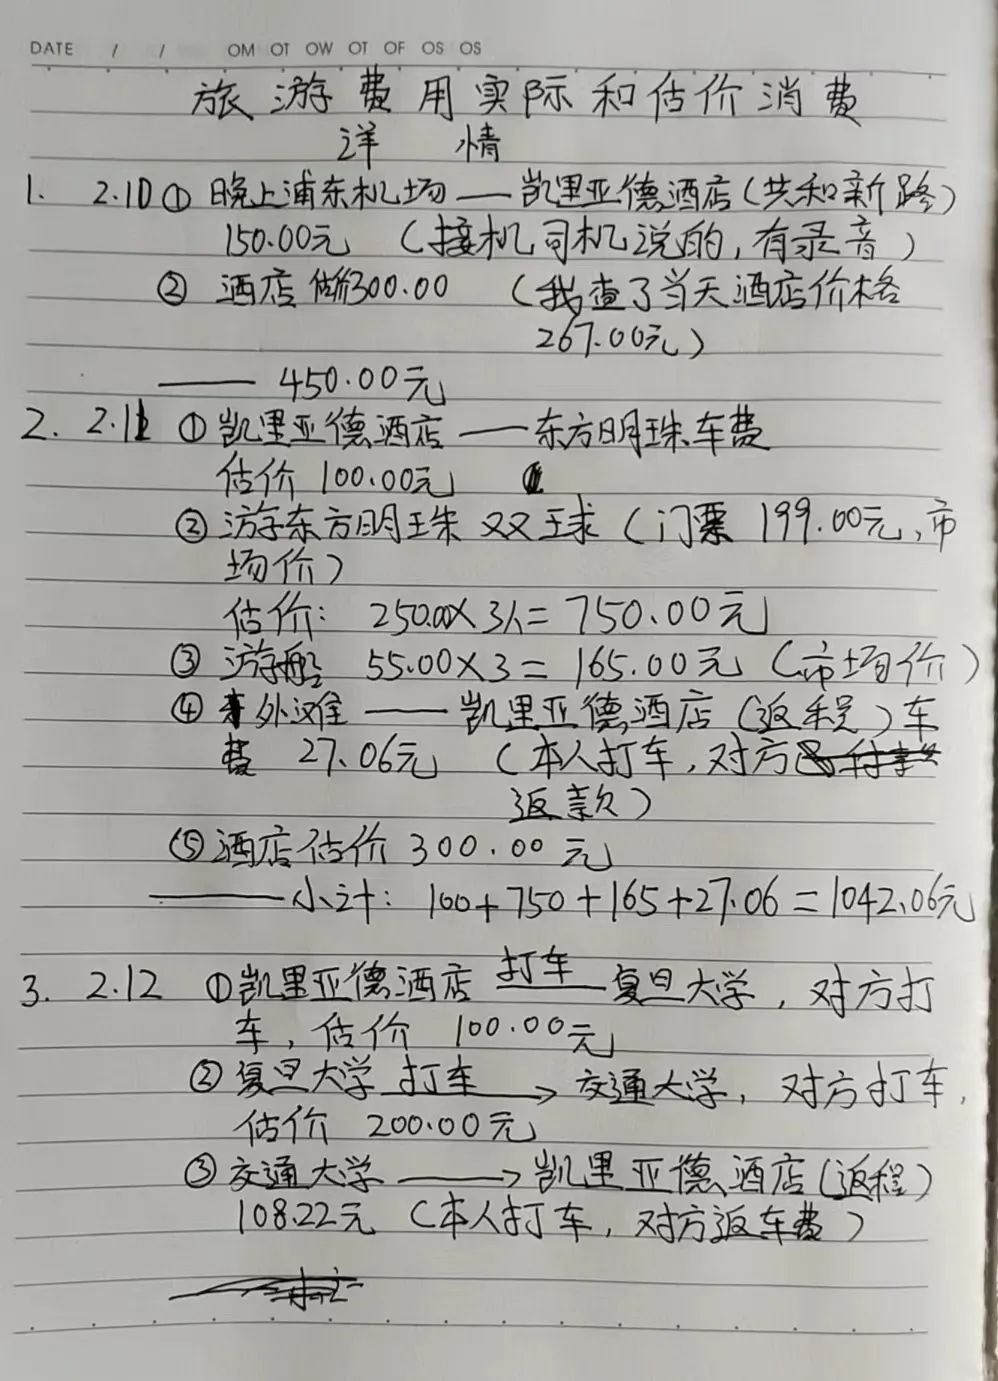 DATE / / OM OT OW OT OF OS OS
旅游费用实际和估价消费
详 情
1. 2.10 ① 晚上浦东机场——凯里亚德酒店(共和新路)
150.00元 (接机司机说的,有录音)
② 酒店估价300.00 (我查了当天酒店价格
267.00元)
—— 450.00元
2. 2.11 ① 凯里亚德酒店——东方明珠车费
估价 100.00元
② 游东方明珠 双球 (门票 199.00元,市
场价)
估价: 250.00×3人=750.00元
③ 游船 55.00×3=165.00元 (市场价)
④ 外滩——凯里亚德酒店(返程)车
费 27.06元 (本人打车,对方
返款)
⑤ 酒店估价 300.00 元
——小计: 100+750+165+27.06=1042.06元
3. 2.12 ① 凯里亚德酒店 打车——复旦大学,对方打
车,估价 100.00元
② 复旦大学 打车——> 交通大学,对方打车,
估价 200.00元
③ 交通大学 ——> 凯里亚德酒店(返程)
108.22元 (本人打车,对方返车费)